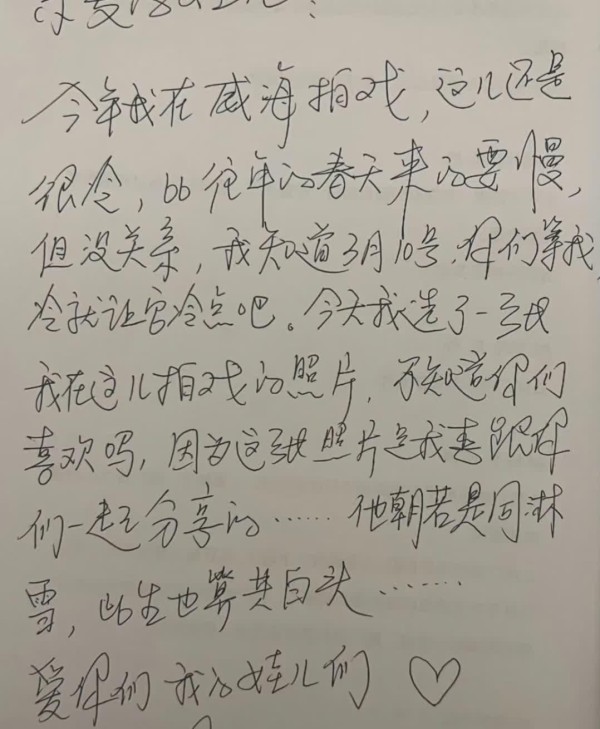 今年我在威海拍戏，这儿还是
很冷，比往年的春天来的要慢，
但没关系，我知道3月10号，你们等我，
冷就让它冷点吧。今天我选了一张
我在这儿拍戏的照片，不知道你们
喜欢吗，因为这张照片是我要跟你
们一起分享的……他朝若是同淋
雪，此生也算共白头……
爱你们 我的娃儿们 ♡